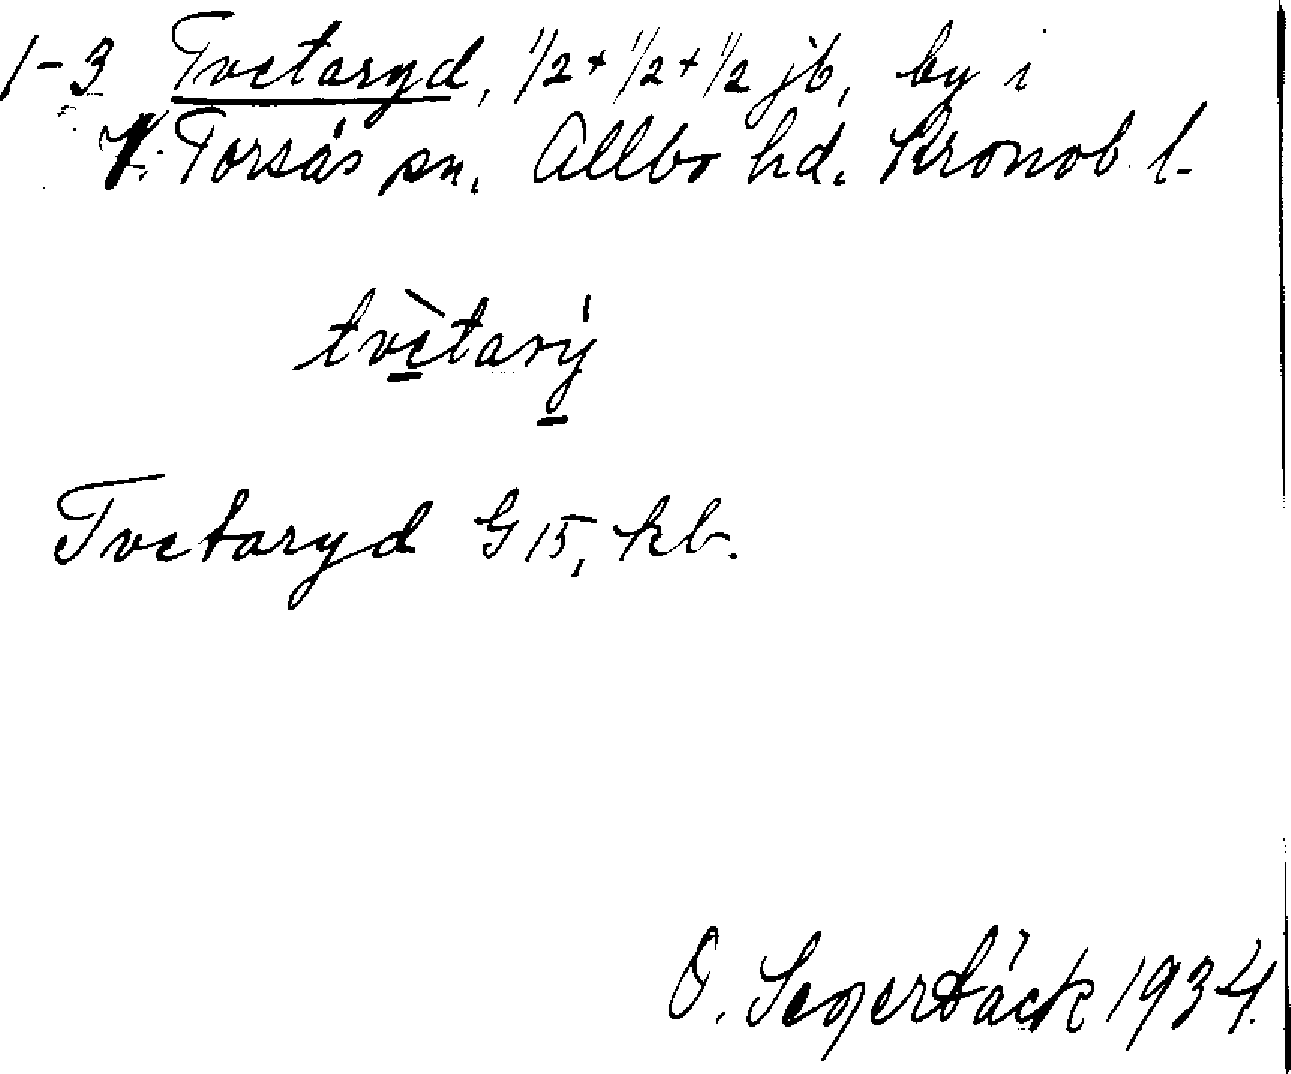 1-3 Tvetaryd, 1/2 + 1/2 + 1/2 jb, by i
V. Torsås sn. Allbo hd. Kronob. l.
tvètarý
Tvetaryd G 15, kb.
O. Segerbäck 1934.